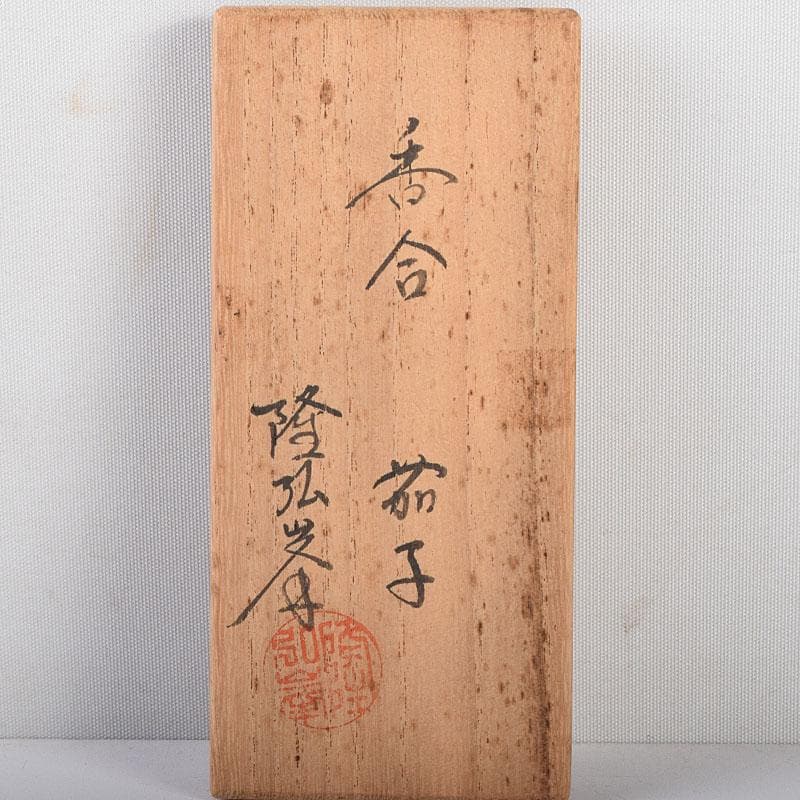 香合　茄子
隆弘峯